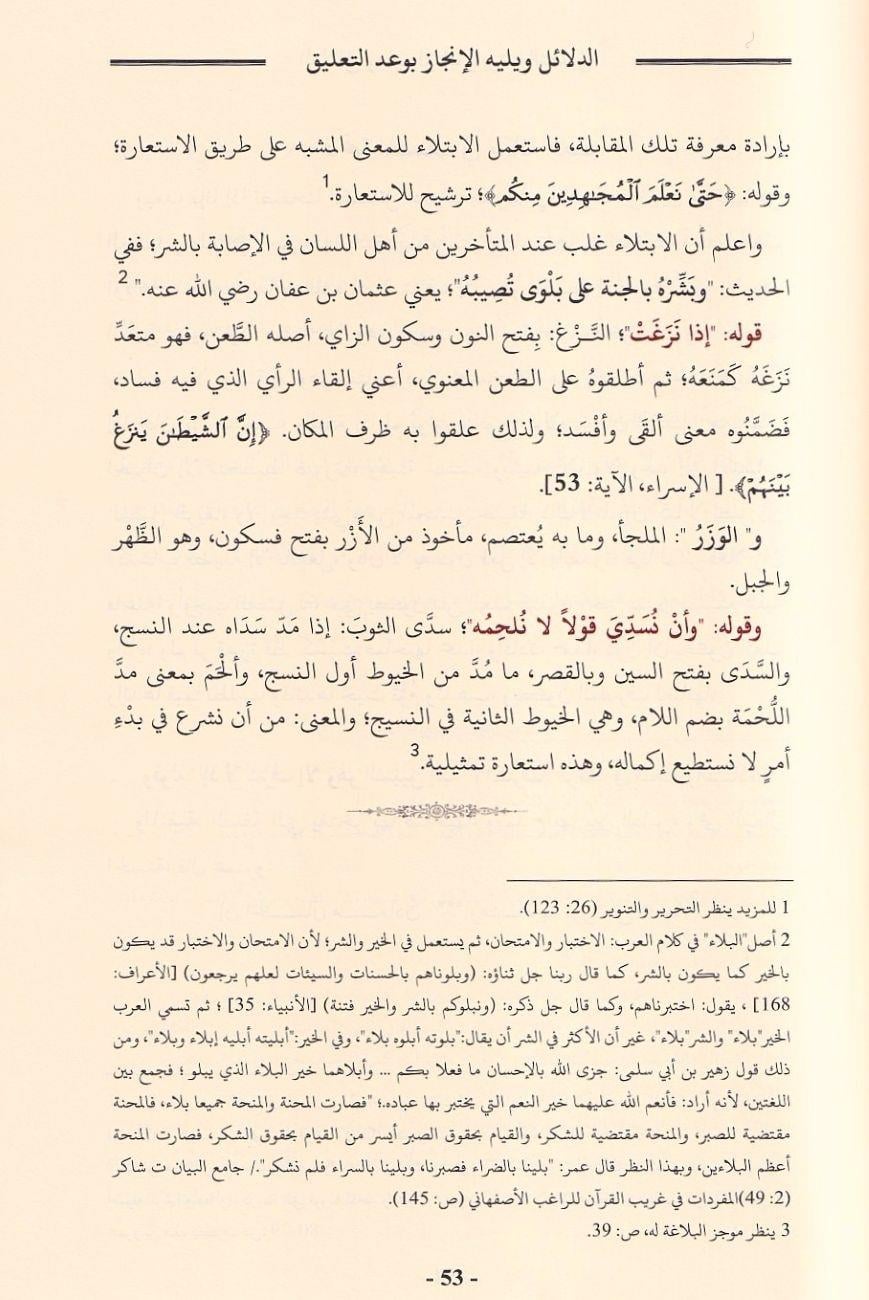 الدلائل ويليه الإنجاز بوعد التعليق
بإرادة معرفة تلك المقابلة، فاستعمل الابتلاء للمعنى المشبه على طريق الاستعارة؛
وقوله: ﴿حَتَّىٰ نَعْلَمَ ٱلْمُجَٰهِدِينَ مِنكُم﴾؛ ترشيح للاستعارة.1
واعلم أن الابتلاء غلب عند المتأخرين من أهل اللسان في الإصابة بالشر؛ ففي
الحديث: "وبَشِّرْهُ بالجنة على بَلْوَى تُصِيبُهُ"؛ يعني عثمان بن عفان رضي الله عنه." 2
قوله: "إذا نَزَغَتْ"؛ النَّـزْغ: بِفتح النون وسكون الزاي، أصله الطَّعن، فهو متعَدِّ
نَزَغَهُ كَمَنَعَهُ؛ ثم أطلقوهُ على الطعن المعنوي، أعني إلقاء الرأي الذي فيه فساد،
فَضَمَّنُوه معنى ألقَى وأفْسَد؛ ولذلك علقوا به ظرف المكان. ﴿إِنَّ ٱلشَّيْطَٰنَ يَنزَغُ
بَيْنَهُمْ﴾. [ الإسراء، الآية: 53].
و" الوَزَرُ ": الملجأ، وما به يُعتصم، مأخوذ من الأَزْر بفتح فسكون، وهو الظَّهْر
والجبل.
وقوله: "وأنْ نُسَدِّيَ قوْلاً لا نُلحِمُه"؛ سدَّى الثوبَ: إذا مَدّ سَدَاه عند النسج،
والسَّدَى بفتح السين وبالقصر، ما مُدَّ من الخيوط أول النسج، وألْحَمَ بمعنى مدَّ
اللُّحْمَة بضم اللام، وهي الخيوط الثانية في النسيج؛ والمعنى: من أن نشرع في بدْءِ
أمرٍ لا نستطيع إكماله، وهذه استعارة تمثيلية.3
1 للمزيد ينظر التحرير والتنوير (26: 123).
2 أصل"البلاء" في كلام العرب: الاختبار والامتحان، ثم يستعمل في الخير والشر؛ لأن الامتحان والاختبار قد يكون
بالخير كما يكون بالشر، كما قال ربنا جل ثناؤه: (وبلوناهم بالحسنات والسيئات لعلهم يرجعون) [الأعراف:
168] ، يقول: اختبرناهم، وكما قال جل ذكره: (ونبلوكم بالشر والخير فتنة) [الأنبياء: 35] ؛ ثم تسمي العرب
الخير"بلاء" والشر"بلاء"، غير أن الأكثر في الشر أن يقال:"بلوته أبلوه بلاء"، وفي الخير:"أبليته أبليه إبلاء وبلاء"، ومن
ذلك قول زهير بن أبي سلمى: جزى الله بالإحسان ما فعلا بكم ... وأبلاهما خير البلاء الذي يبلو ؛ فجمع بين
اللغتين، لأنه أراد: فأنعم الله عليهما خير النعم التي يختبر بها عباده.؛ "فصارت المحنة والمنحة جميعا بلاء، فالمحنة
مقتضية للصبر، والمنحة مقتضية للشكر، والقيام بحقوق الصبر أيسر من القيام بحقوق الشكر، فصارت المنحة
أعظم البلاءين، وبهذا النظر قال عمر: "بلينا بالضراء فصبرنا، وبلينا بالسراء فلم نشكر"./ جامع البيان ت شاكر
(2: 49)المفردات في غريب القرآن للراغب الأصفهاني (ص: 145).
3 ينظر موجز البلاغة له، ص: 39.
- 53 -